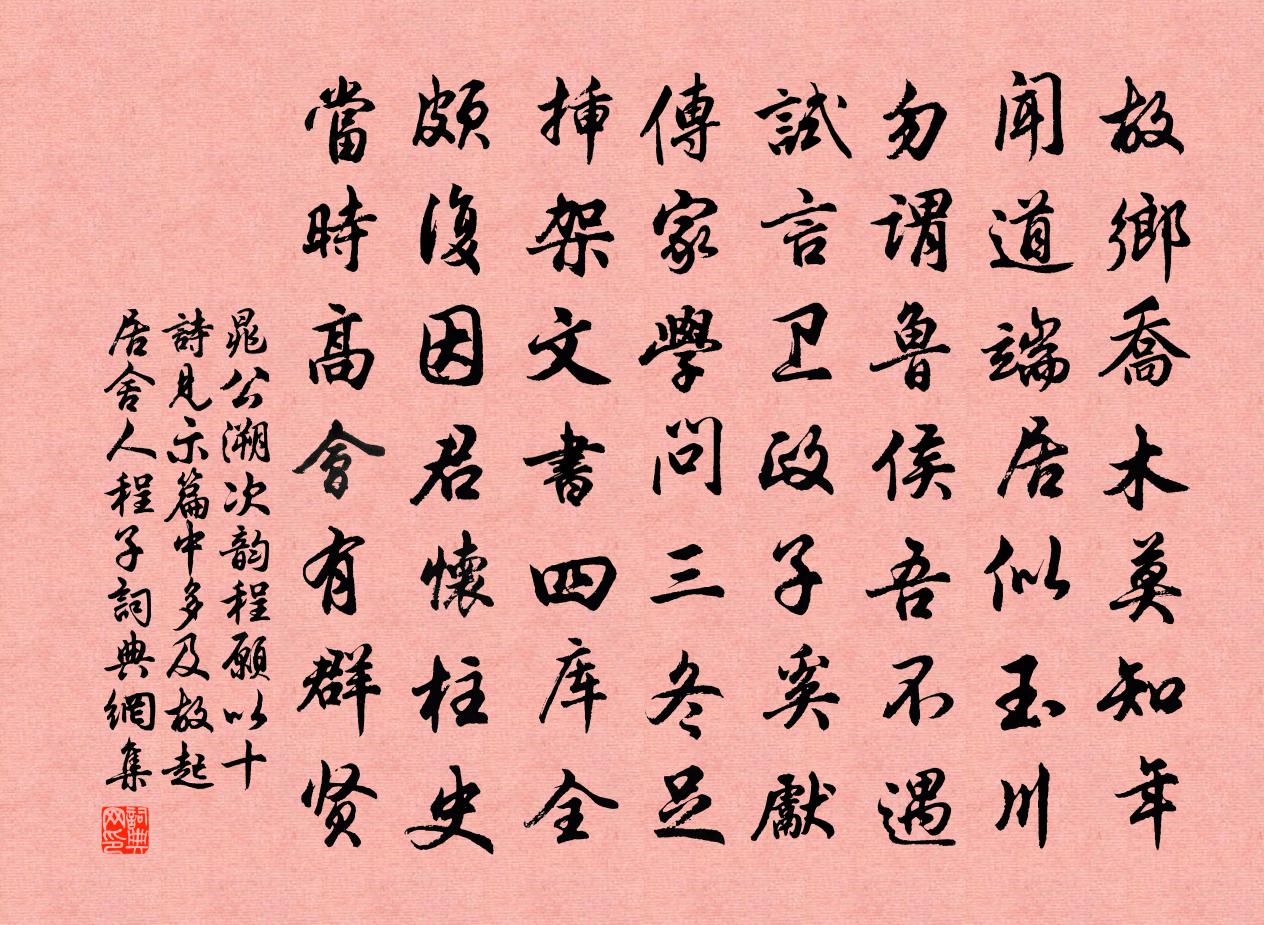 故鄉喬木莫知年
聞道端居似玉川
勿謂魯侯吾不遇
試言卫政子奚獻
傳家學問三冬足
挿架文書四库全
頗復因君懷柱史
當時高會有群贤
晁公溯次韵程愿以十
詩見示篇中多及故起
居舍人程子詞典網集
詞典
网印